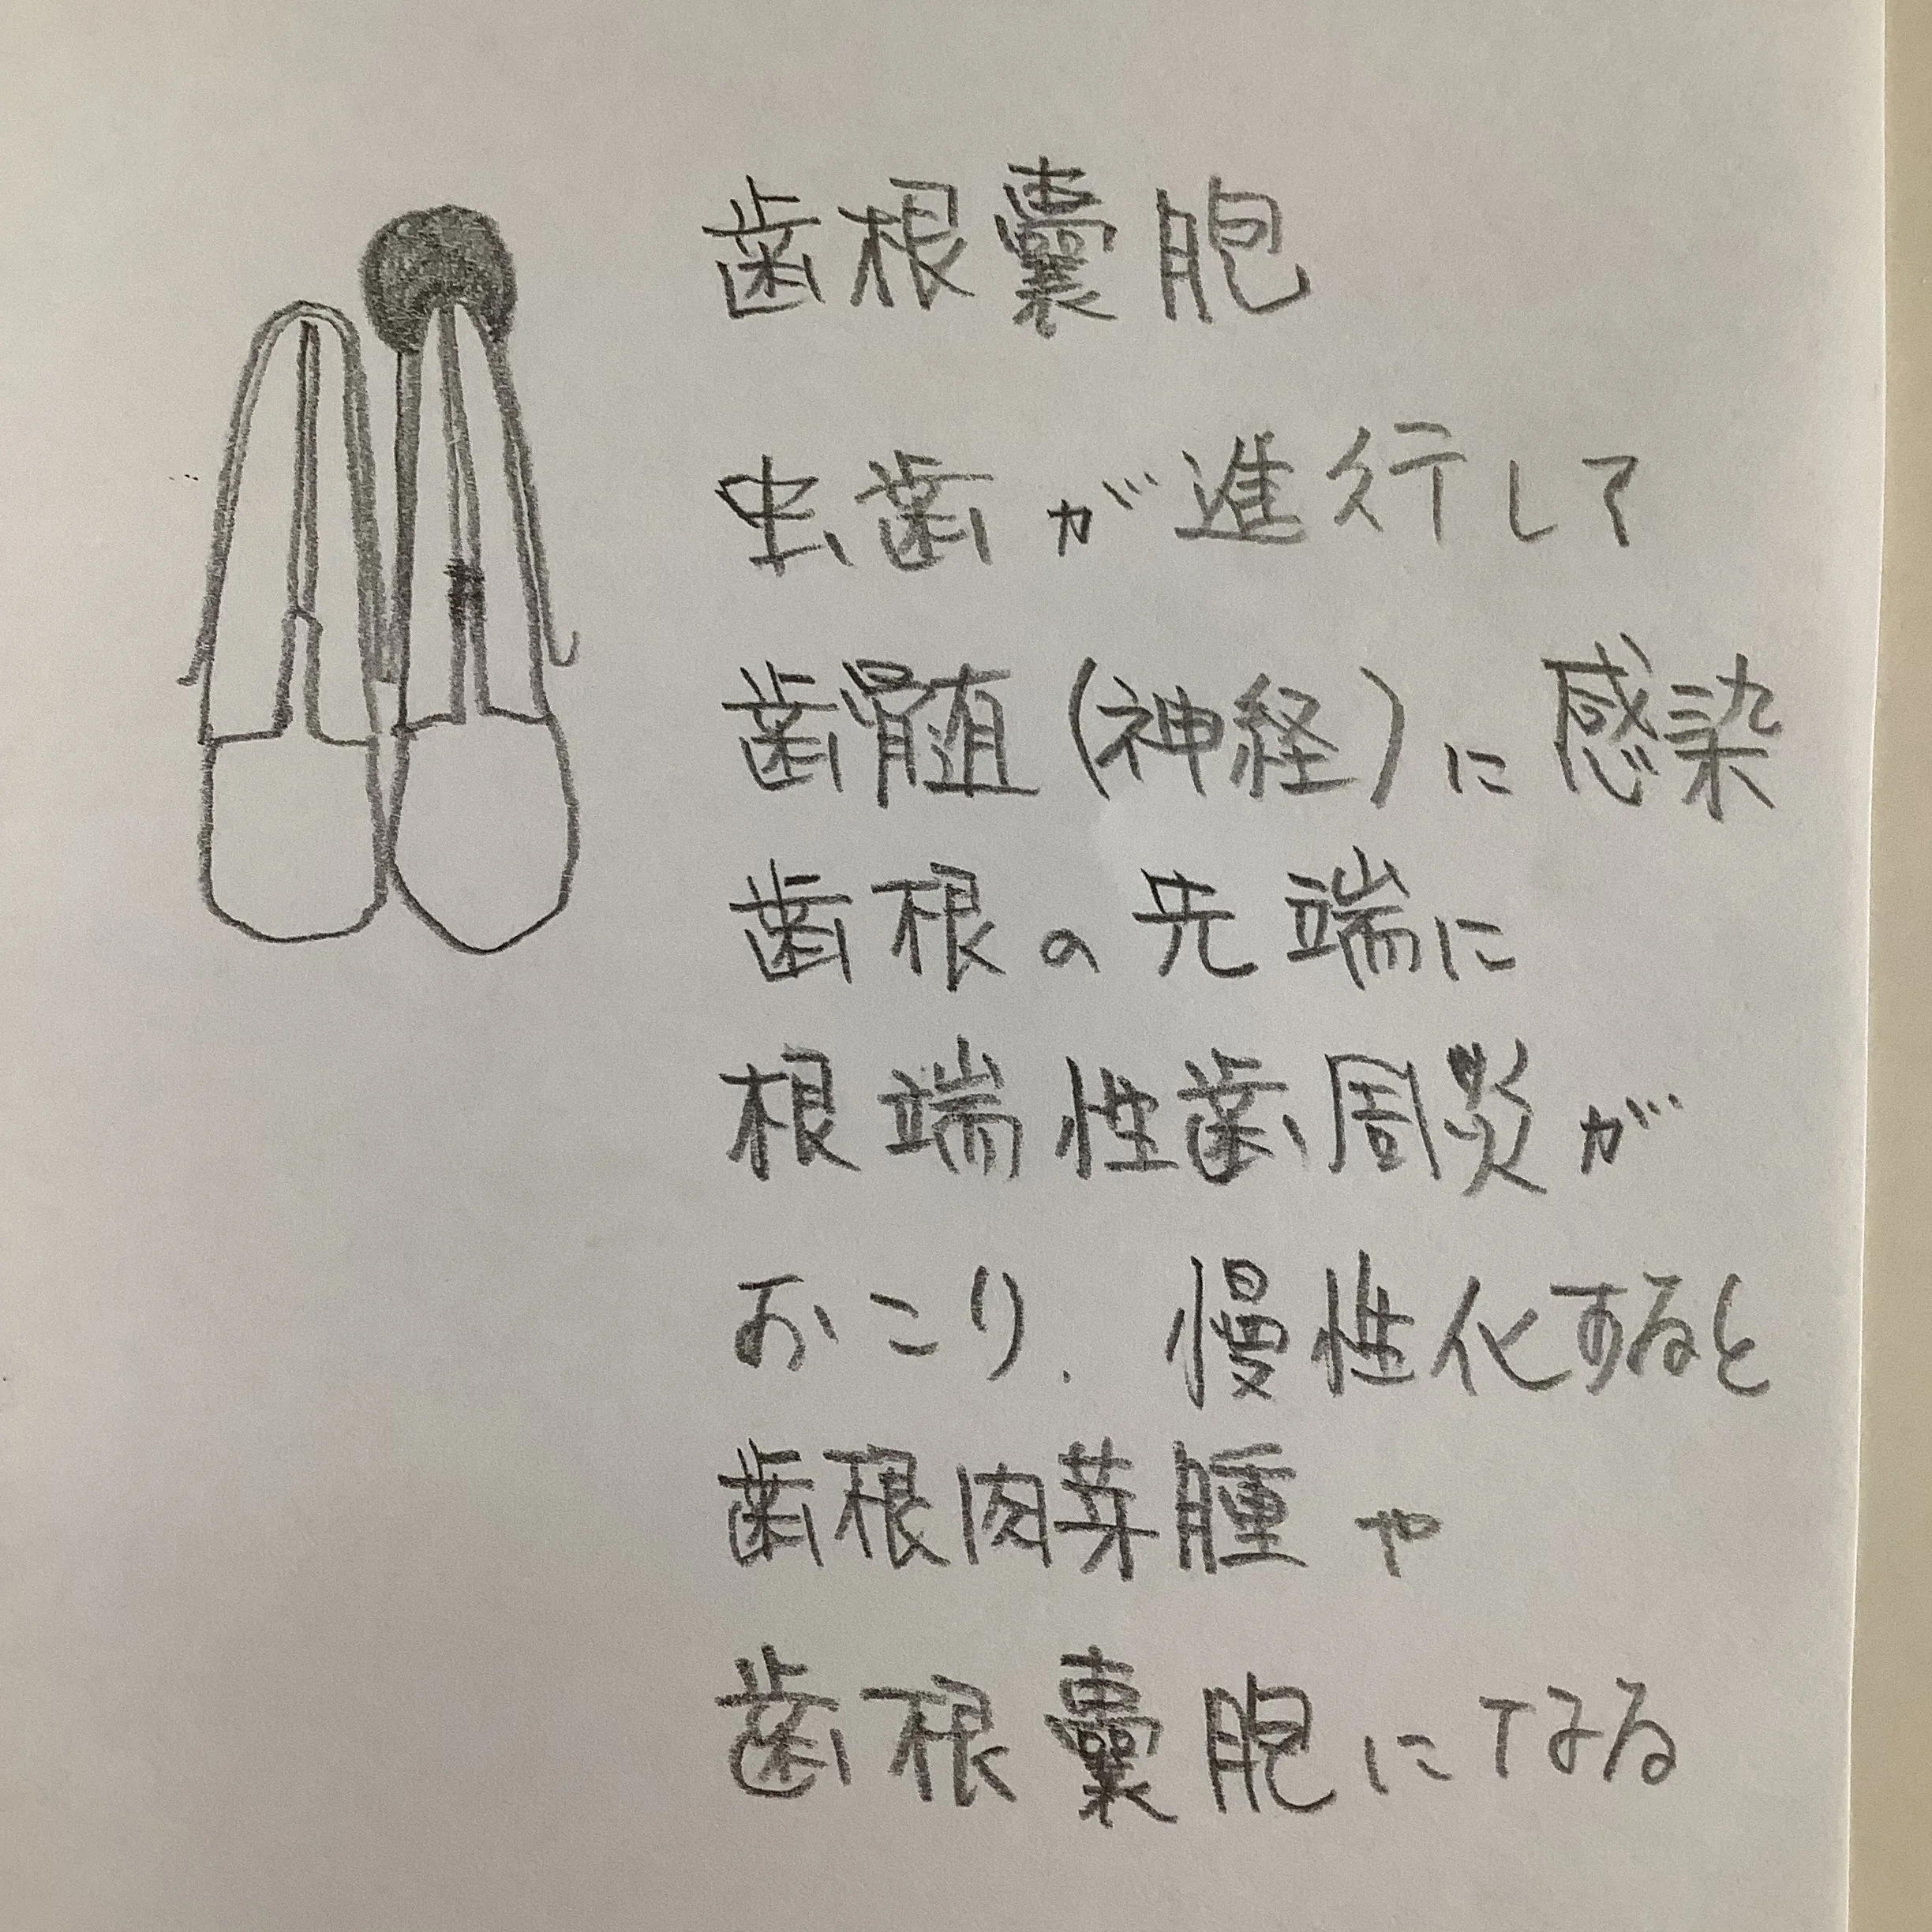 歯根嚢胞
虫歯が進行して
歯髄(神経)に感染
歯根の先端に
根端性歯周炎が
おこり.慢性化すると
歯根肉芽腫や
歯根嚢胞になる